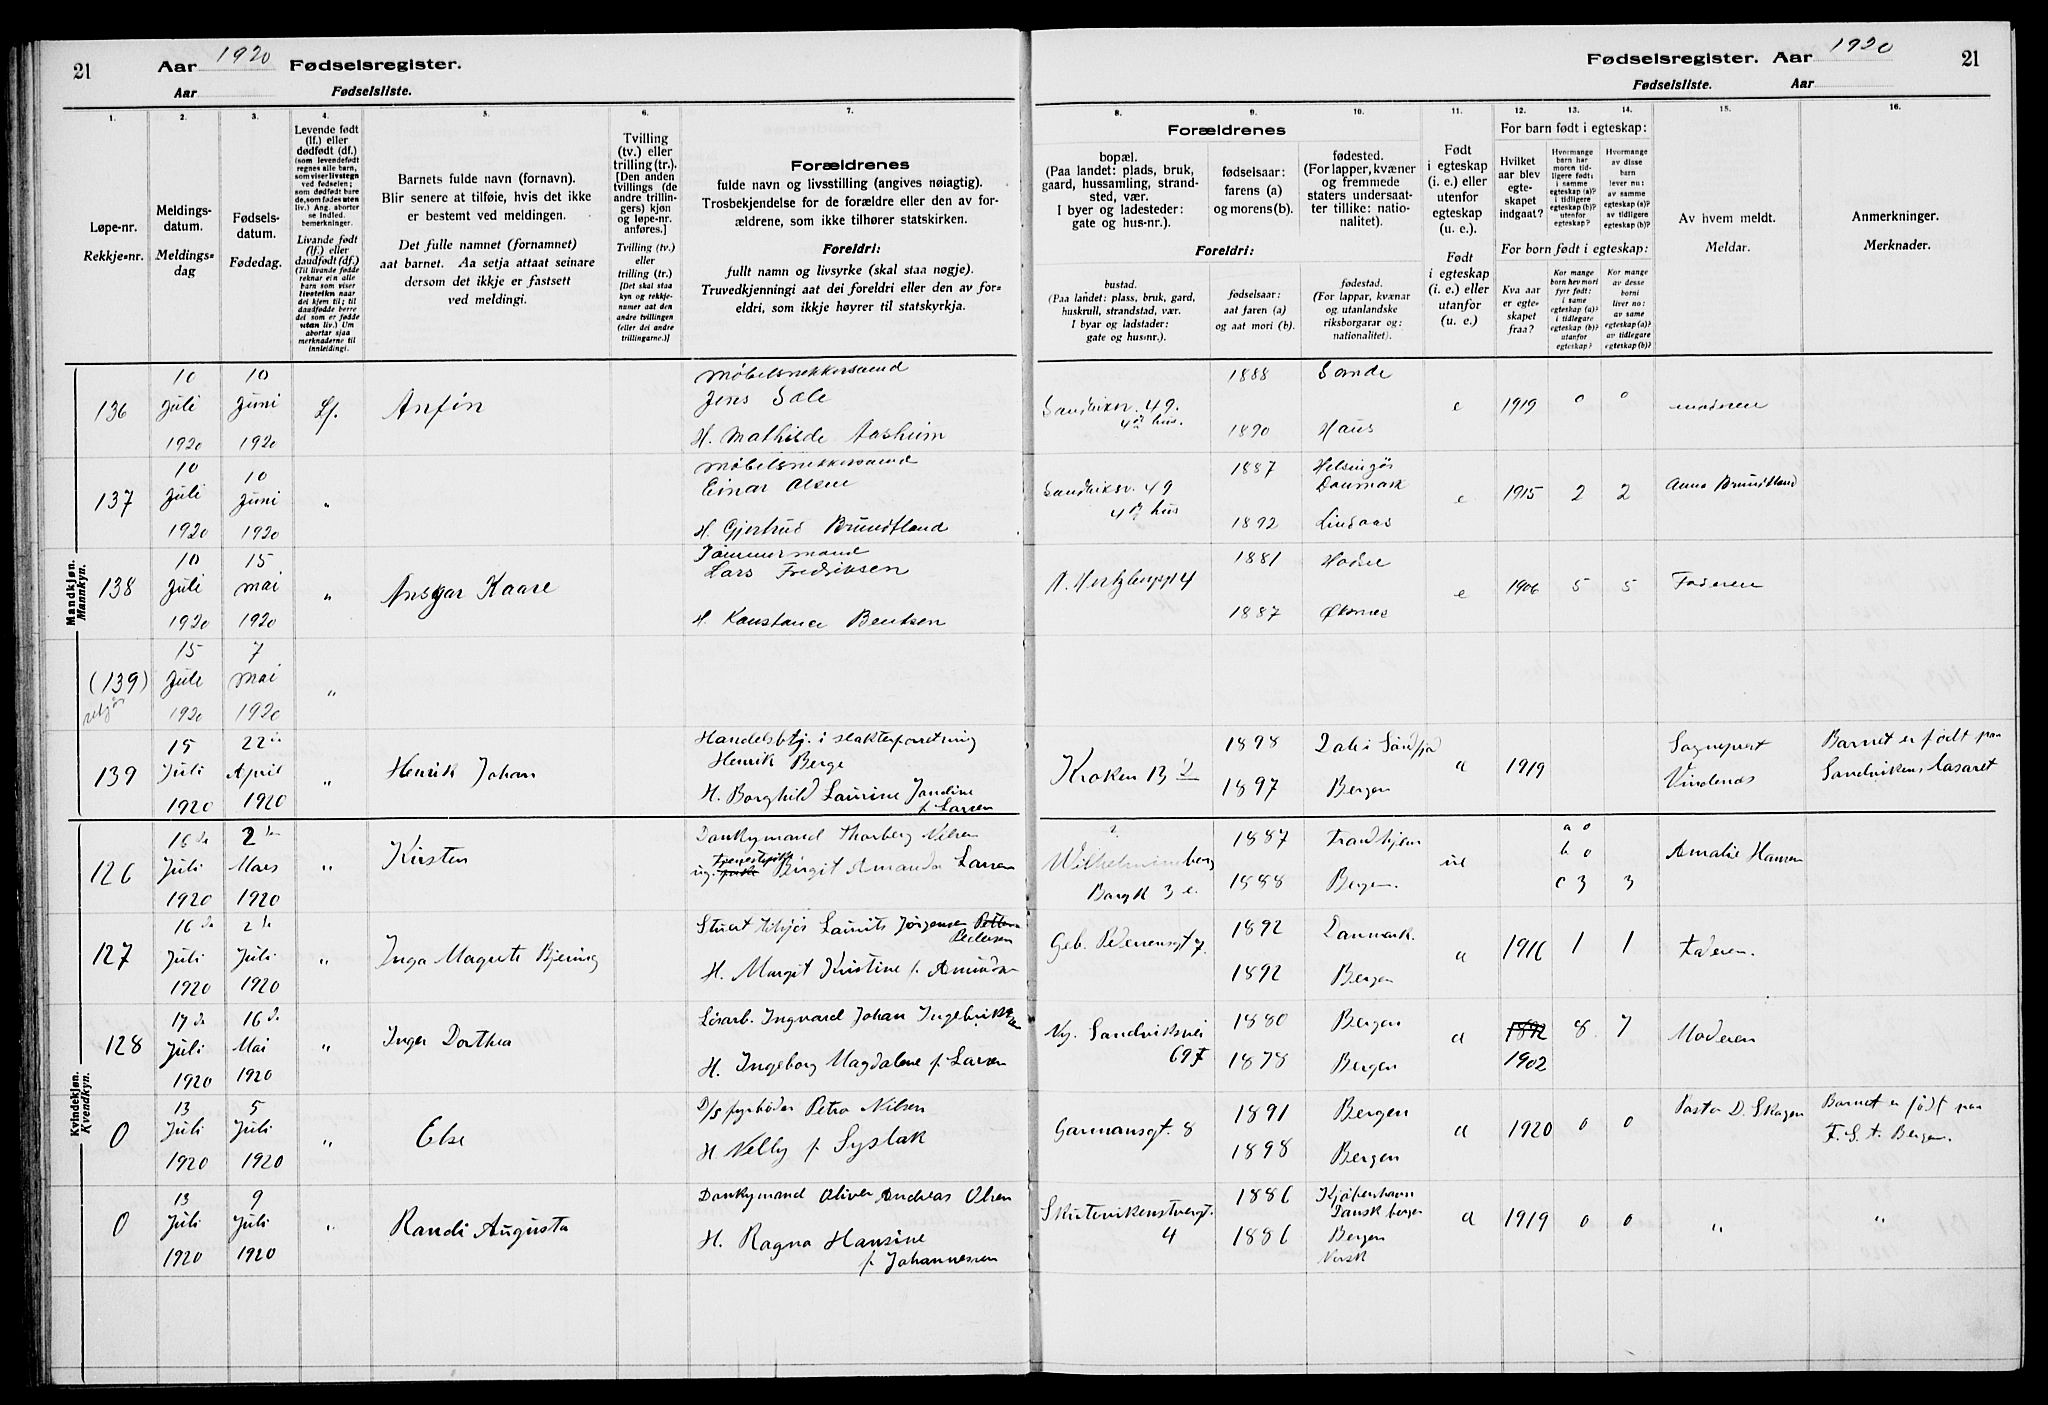 21
Aar 1920 Fødselsregister.
Aar Fødselsliste.
Fødselsregister. Aar 1920
21
Fødselsliste. Aar
1. 2. 3. 4. 5. 6. 7.
Løpe-nr.
Rekkje-nr.
Meldings-
datum.
Meldings-
dag
Fødsels-
datum.
Fødedag.
Levende født
(lf.) eller
dødfødt (df.)
(som levendefødt
regnes alle barn,
som viser livstegn
ved fødselen;
som dødfødt bare
de, som fødes uten
liv.) Ang. aborter
se indled.
bemerkninger.
Livande født
(lf.) eller
daudfødt (df.)
(Til livande fødde
reknar ein alle
barn som viser
livsteikn naar
dei kjem til; til
daudfødde berre
dei som er fødde
utan liv.) Um
abortar sjaa
merknaderne til
innleidingi.
Barnets fulde navn (fornavn).
Blir senere at tilføie, hvis det ikke
er bestemt ved meldingen.
Det fulle namnet (fornamnet)
aat barnet. Aa setja attaat seinare
dersom det ikkje er fastsett
ved meldingi.
Tvilling
(tv.) eller
trilling (tr.).
[Den anden
tvillings (de
andre trillin-
gers) kjøn
og løpe-nr.
anføres.]
Tvilling (tv.)
eller
trilling (tr.)
[Det skal staa
kyn og rekkje-
numer aat den
andre tvillingen
(eller dei andre
trillingarne.)]
Forældrenes
fulde navn og livsstilling (angives nøiagtig).
Trosbekjendelse for de forældre eller den av for-
ældrene, som ikke tilhører statskirken.
Foreldri:
fullt namn og livsyrke (skal staa nøgje).
Truvedkjenningi aat dei foreldri eller den av for-
eldri, som ikkje høyrer til statskyrkja.
8. 9. 10. 11. 12. 13. 14. 15. 16.
Forældrenes
bopæl.
(Paa landet: plads, bruk,
gaard, hussamling, strand-
sted, vær.
I byer og ladesteder:
gate og hus-nr.).
fødselsaar:
farens (a)
og morens (b).
fødested.
(For lapper, kvæner
og fremmede
staters undersaat-
ter tillike: natio-
nalitet).
Foreldri:
bustad.
(Paa landet: plass, bruk, gard,
huskrull, strandstad, vær.
I byar og ladstader:
gate og hus-nr.).
fødselsaar:
aat faren (a)
og aat mori (b).
fødestad.
(For lappar, kvænar
og utanlandske
riksborgarar og:
nationalitet).
Født
i egteskap
(i. e.) eller
utenfor
egteskap
(u. e.).
Født
i egteskap
(i. e.) eller
utanfor
egteskap
(u. e.).
For barn født i egteskap:
Hvilket
aar blev
egte-
skapet
indgaat?
Hvormange
barn har
moren tid-
ligere født:
i samme
egteskap (a)?
i tidligere
egteskap (b)?
utenfor
egteskap?
Hvormange
av disse
barn
lever nu:
av samme
egteskap (a)?
av tidligere
egteskap (b)?
For born født i egteskap:
Kva aar
er egte-
skapet
fraa?
Kor mange
born hev mori
fyrr født:
i same
egteskap (a)?
i tidlegare
egteskap (b)?
utanfor
egteskap?
Kor mange
av desse
borni
liver no:
av same
egteskap (a)?
av tidlegare
egteskap (b)?
Av hvem meldt.
Meldar.
Anmerkninger.
Merknader.
Mandkjøn.
Mannkyn.
136 10 Juli 1920 10 Juni 1920 Lf. Anfin
Jens Sæle
H. Mathilde Aasheim
Sandviksv. 49.
1888 Sande
1890 Haus
e 1919 0 0 moderen
137 10 Juli 1920 10 Juni 1920 "
Einar Olsen
H. Gjertrud Brundtland
Sandviksv. 49
1887 Helsingør Danmark
1892 Lindaas
e 1915 2 2 Anna Brundtland
138 10 Juli 1920 15 mai 1920 " Ansgar Kaare
Tømmermand
Lars Fredriksen
H. Konstance Bentsen
1881 Hadsel
1887 Øksnes
e 1906 5 5 Faderen
(139) 15 Juli 1920 7 mai 1920 "
139 15 Juli 1920 22de April 1920 " Henrik Johan
Handelsbtj. i slakterforretning
Henrik Berge
H. Borghild Laurine Jandine
f. Larsen
Kroken 13
1898 Dale i Søndfjord
1897 Bergen
1919
Sogneprest
Vindenes
Barnet er født paa
Sandvikens lasaret
126 16de Juli 1920 2de Mars 1920 " Kirsten
Donkymand Thorberg Nilsen
Birgit Amanda Larsen
Wilhelmineborg
1887 Trondhjem
1888 Bergen.
a 0
b 0
c 3 3
Amalie Hansen
127 16de Juli 1920 2de Juli 1920 " Inga Margrete Bjering
Laurits Jørgensen Pedersen
H. Margit Kristine f. Amundsen
Geb. Pedersensgt 7.
1892 Danmark.
1892 Bergen
1916 1 1 Faderen.
Kvindekjøn.
Kvendkyn.
128 17de Juli 1920 16de Mai 1920 " Inger Dorthea
Løsarb. Ingvard Johan Ingebriktsen
H. Ingeborg Magdalene f. Larsen
Ny. Sandviksvei
69
1880 Bergen
1878 Bergen
1892
1902
8 7 Moderen
0 13 Juli 1920 5 Juli 1920 " Else
D/s fyrbøder Petro Nilsen
H. Nelly f. Syslak
Garmansgt. 8
1891 Bergen
1898 Bergen
1920 0 0
Pastor D. Skagen
Barnet er født paa
F. S. A. Bergen.
0 13 Juli 1920 9 Juli 1920 " Randi Augusta
Donkymand Oliver Andreas Olsen
H. Ragna Hansine
f. Johannessen
Skutevikenstvergt.
4
1886 Kjøbenhavn
Dansk borger
1886 Bergen
Norsk
1919 0 0 " "